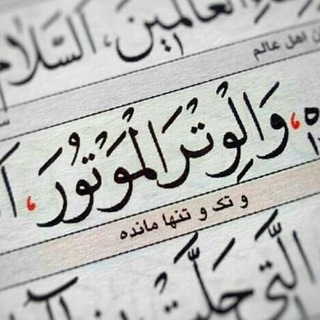 العالمين، السلا
ن اهل عالم
ه، والوتر الموتور، ا
و تک و تنها مانده
التي حلت